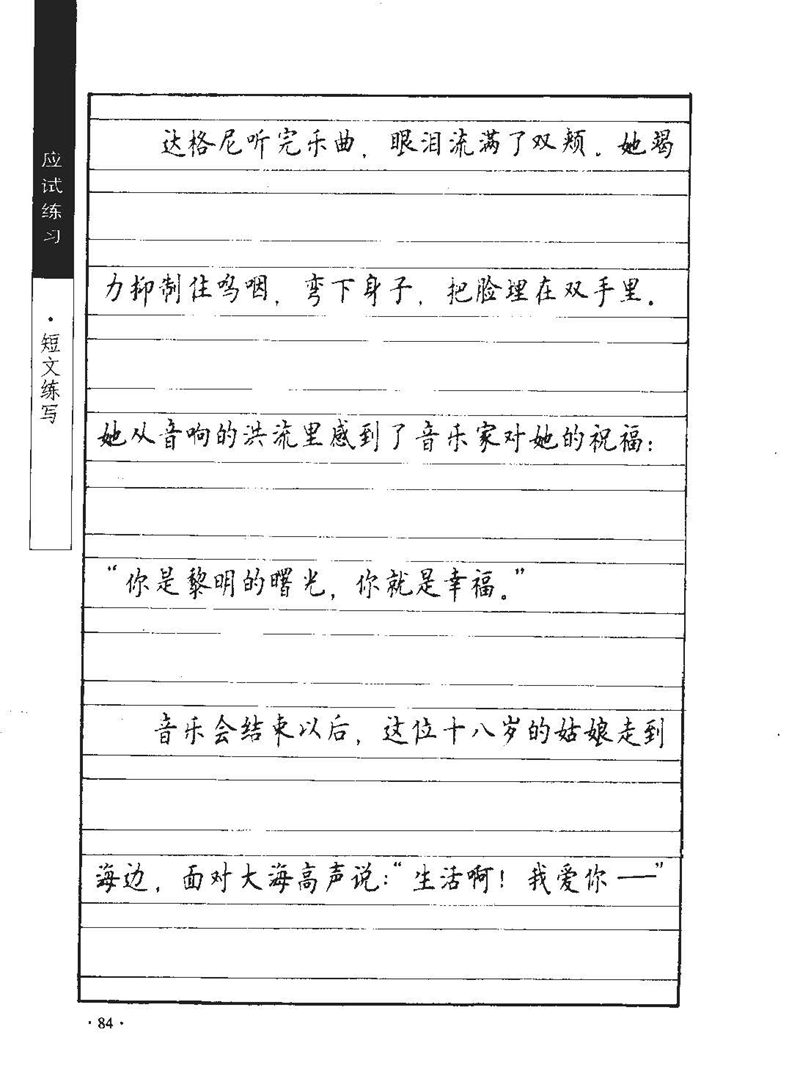 应试练习
·短文练写
达格尼听完乐曲，眼泪流满了双颊。她竭
力抑制住呜咽，弯下身子，把脸埋在双手里。
她从音响的洪流里感到了音乐家对她的祝福：
“你是黎明的曙光，你就是幸福。”
音乐会结束以后，这位十八岁的姑娘走到
海边，面对大海高声说：“生活啊！我爱你——”
·84·